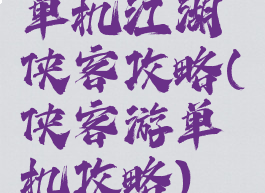 单机江湖
侠客攻略(
侠客游单
机攻略)